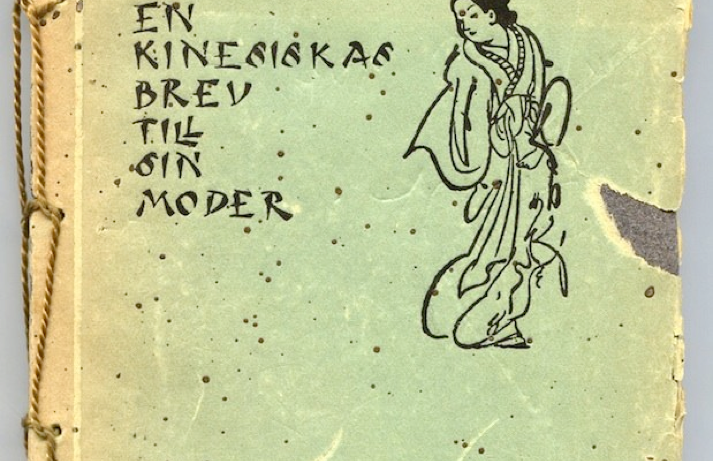 EN
KINESISKAS
BREV
TILL
SIN
MODER